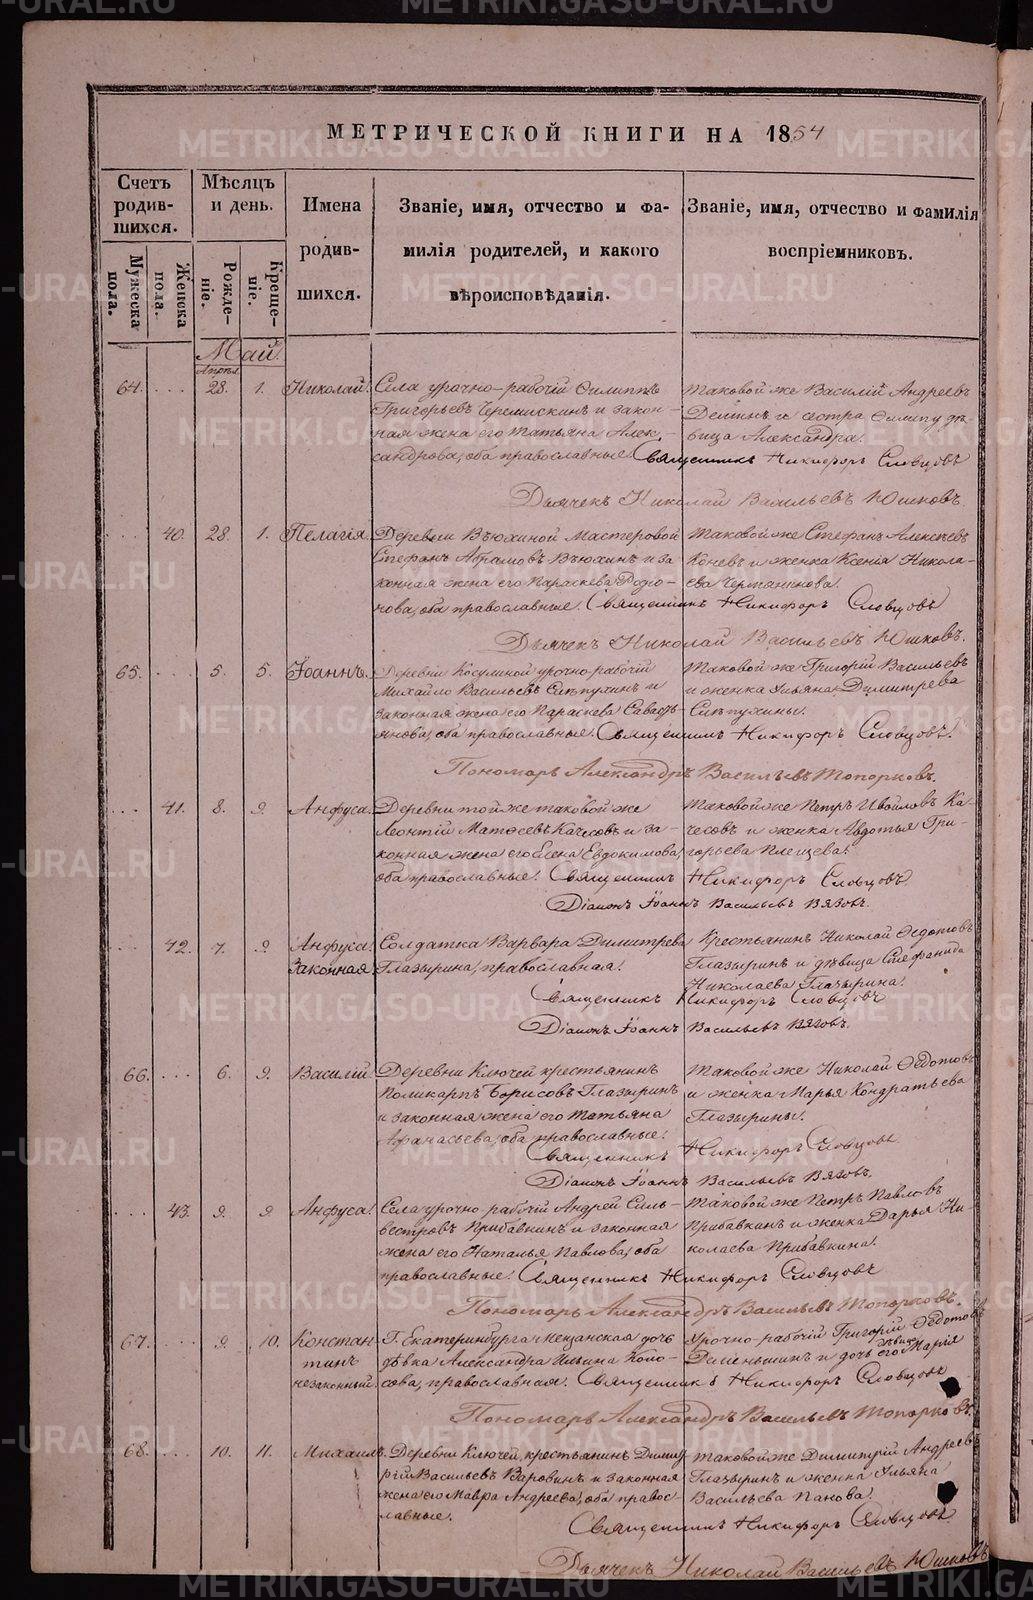 МЕТРИЧЕСКОЙ КНИГИ НА 1854
Счетъ родившихся.
Мужеска пола.
Женска пола.
Мѣсяцъ и день.
Рожденіе.
Крещеніе.
Имена родившихся.
Званіе, имя, отчество и фамилія родителей, и какого вѣроисповѣданія.
Званіе, имя, отчество и фамилія воспріемниковъ.
Май.
Апрѣл.
64. 28. 1. Николай.
Села урочно-рабочій Филиппъ
Григорьевъ Черемискинъ и закон-
ная жена его Татьяна Алек-
сандрова, оба православные.
Таковой же Василій Андреевъ
Деминъ и сестра Филипу дѣ-
вица Александра.
Священникъ Никифоръ Словцовъ
Дьячекъ Николай Васильевъ Юшковъ.
40. 28. 1. Пелагія.
Деревни Вьюхиной Мастеровой
Стефанъ Абрамовъ Вьюхинъ и за-
конная жена его Параскева Родіо-
нова, оба православные.
Таковой же Стефанъ Алексѣевъ
Коневъ и женка Ксенія Никола-
ева
Священникъ Никифоръ Словцовъ
Дьячекъ Николай Васильевъ Юшковъ.
65. 5. 5. Іоаннъ.
Деревни Косулиной урочно-рабочій
Михайло Васильевъ Слѣпухинъ и
законная жена его Параскева Савасть-
янова, оба православные.
Таковой же Григорій Васильевъ
и женка Ульяна Димитрева
Слѣпухины.
Священникъ Никифоръ Словцовъ.
Пономарь Александръ Васильевъ Топорковъ.
41. 8. 9. Анфуса.
Деревни той же таковой же
Леонтій Матвеевъ Качесовъ и за-
конная жена его Елена Евдокимова,
оба православные.
Таковой же Петръ Ка-
чесовъ и женка Авдотья Гри-
горьева Плещева.
Священникъ Никифоръ Словцовъ
Діаконъ Іоаннъ Васильевъ Вязовъ.
42. 7. 9. Анфуса. Законная
Солдатка Варвара Димитрева
Глазырина, православная.
Крестьянинъ Николай Ѳедотовъ
Глазыринъ и дѣвица Стефанида
Николаева Глазырина.
Священникъ Никифоръ Словцовъ
Діаконъ Іоаннъ Васильевъ Вязовъ.
66. 6. 9. Василій.
Деревни Ключей крестьянинъ
Поликарпъ Борисовъ Глазыринъ
и законная жена его Татьяна
Афанасьева, оба православные.
Таковой же Николай Ѳедотовъ
и женка Марья Кондратьева
Глазырины.
Священникъ Никифоръ Словцовъ
Діаконъ Іоаннъ Васильевъ Вязовъ.
43. 9. 9 Анфуса.
Села урочно-рабочій Андрей Силь-
вестровъ Прибавкинъ и законная
жена его Наталья Павлова, оба
православные.
Таковой же Петръ Павловъ
Прибавкинъ и женка Дарья Ни-
колаева Прибавкина.
Священникъ Никифоръ Словцовъ
Пономарь Александръ Васильевъ Топорковъ.
67. 9. 10. Констан
тинъ
незаконный.
Г. Екатеринбурга Мещанская дочь
дѣвка Александра Ильина Коло-
сова, православная.
Урочно-рабочій Григорій Ѳедотовъ
и дочь его дѣвица Марія
Священникъ Никифоръ Словцовъ
Пономарь Александръ Васильевъ Топорковъ.
68. 10. 11. Михаилъ.
Деревни Ключей, крестьянинъ Димит-
рій Васильевъ Варовинъ и законная
жена его Мавра Андреева, оба правос-
лавные.
Таковой же Димитрій Андреевъ
Глазыринъ и женка Ульяна
Васильева Панова.
Священникъ Никифоръ Словцовъ.
Дьячекъ Николай Васильевъ Юшковъ
METRIKI.GASO-URAL.RU